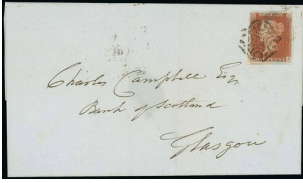 Charles Campbell Esqr
Bank of Scotland
Glasgow